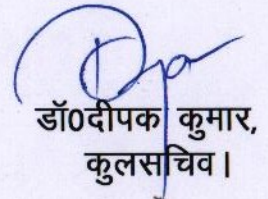 डॉ0दीपक कुमार,
कुलसचिव।